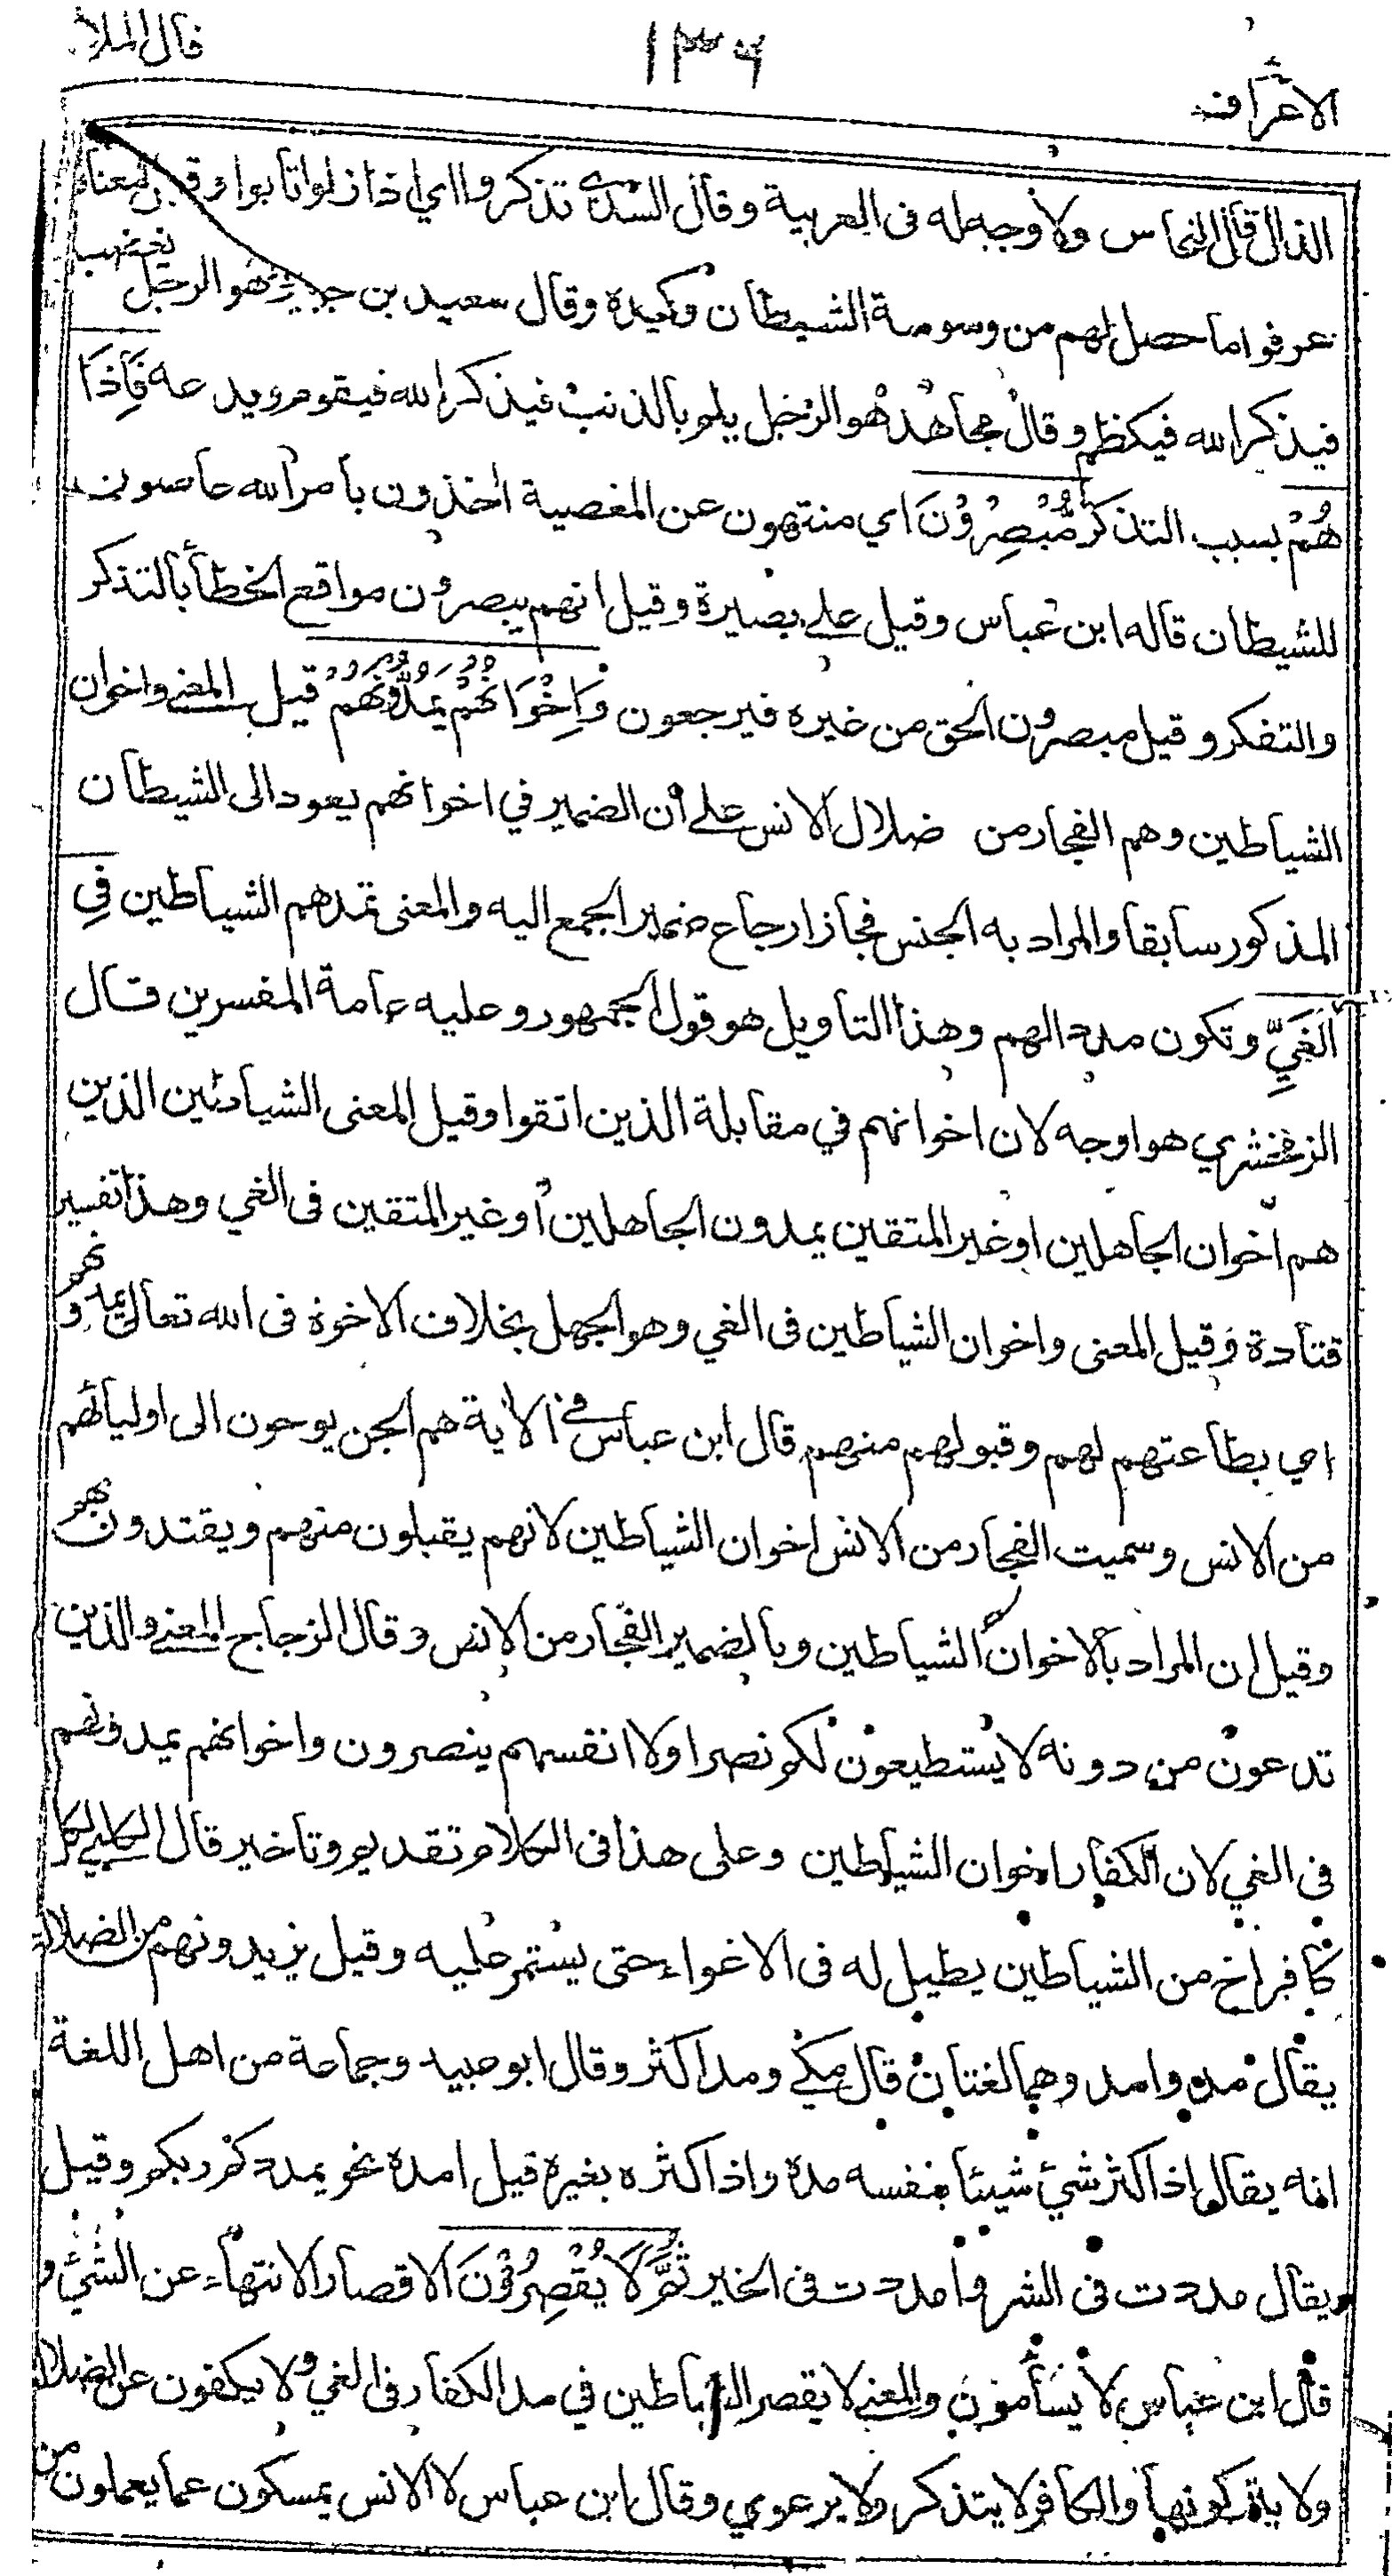 قال الملأ
١٣٦
الاعراف
الذال قال النحاس ولا وجه له فى العربية وقال السدي تذكروا اي اذا زلوا تابوا وقيل معناه
عرفوا ما حصل لهم من وسوسة الشيطان وكيده وقال سعيد بن جبير هو الرجل يغضب
فيذكر الله فيكظم وقال مجاهد هو الرجل يلم بالذنب فيذكر الله فيقوم ويدعه فَإِذَا
هُمْ بسبب التذكر مُّبْصِرُوْنَ اي منتهون عن المعصية اخذون بأمر الله عاصون
للشيطان قاله ابن عباس وقيل على بصيرة وقيل انهم يبصرون مواقع الخطأ بالتذكر
والتفكر وقيل مبصرون الحق من غيره فيرجعون وَاِخْوَانُهُمْ يَمُدُّوْنَهُمْ قيل المعنى واخوان
الشياطين وهم الفجار من ضلال الانس على أن الضمير في اخوانهم يعود الى الشيطان
المذكور سابقا والمراد به الجنس فجاز ارجاع ضمير الجمع اليه والمعنى تمدهم الشياطين فِي
الْغَيِّ وتكون مددا لهم وهذا التاويل هو قول الجمهور وعليه عامة المفسرين قال
الزمخشري هو اوجه لان اخوانهم في مقابلة الذين اتقوا وقيل المعنى الشياطين الذين
هم اخوان الجاهلين او غير المتقين يمدون الجاهلين أو غير المتقين فى الغي وهذا تفسير
قتادة وقيل المعنى واخوان الشياطين فى الغي وهو الجهل بخلاف الاخوة فى الله تعالى يمدونهم
اي بطاعتهم لهم وقبولهم منهم قال ابن عباس في الاية هم الجن يوحون الى اوليائهم
من الانس وسميت الفجار من الانس اخوان الشياطين لانهم يقبلون منهم ويقتدون بهم
وقيل ان المراد بالاخوان الشياطين وبالضمير الفجار من الانس وقال الزجاج المعنى والذين
تدعون من دونه لا يستطيعون لكم نصرا ولا انفسهم ينصرون واخوانهم يمدونهم
فى الغي لان الكفار اخوان الشياطين وعلى هذا فى الكلام تقديم وتاخير قال الكلبي لكل
كافر اخ من الشياطين يطيل له فى الاغواء حتى يستمر عليه وقيل يزيدونهم من الضلالة
يقال مد وامد وهما لغتان قال مكي ومد اكثر وقال ابو عبيد وجماعة من اهل اللغة
انه يقال اذا كثر شيئ شيئا بنفسه مده واذا كثره بغيره قيل امده نحو يمددكم ربكم وقيل
يقال مددت فى الشر وامددت فى الخير ثُمَّ لَا يُقْصِرُوْنَ الاقصار الانتهاء عن الشيئ و
قال ابن عباس لا يسأمون والمعنى لا يقصر الشياطين في مد الكفار فى الغي ولا يكفون عن الضلالة
ولا يتركونها والكافر لا يتذكر ولا يرعوي وقال ابن عباس لا الانس يمسكون عما يعملون من